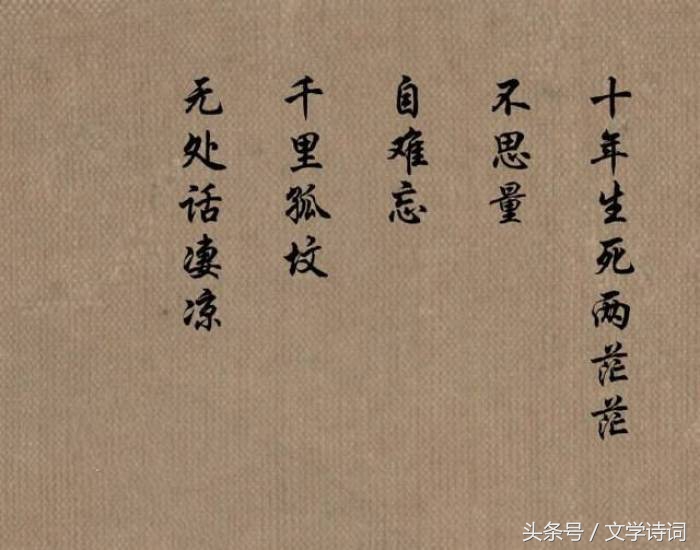 十年生死两茫茫
不思量
自难忘
千里孤坟
无处话凄凉
头条号／文学诗词